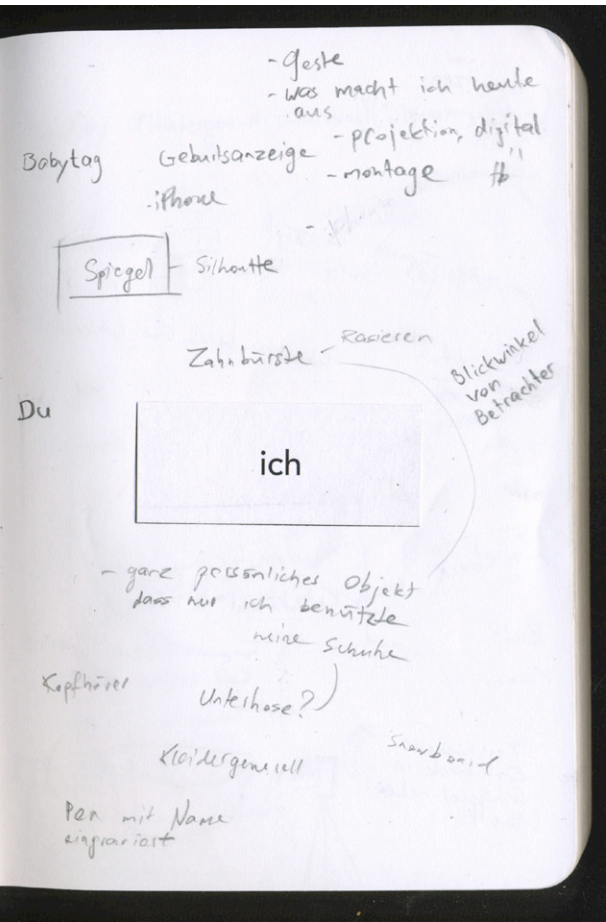 - Geste
- was macht ich heute
aus
- projektion, digital
Babytag Geburtsanzeige - montage fb
iPhone
Spiegel - Silhoutte
Zahnbürste - Rasieren
Blickwinkel
von
Betrachter
Du
ich
- ganz persönliches Objekt
dass nur ich benützte
meine Schuhe
Kopfhörer Unterhose?
Snowboard
Kleidergenerell
Pen mit Name